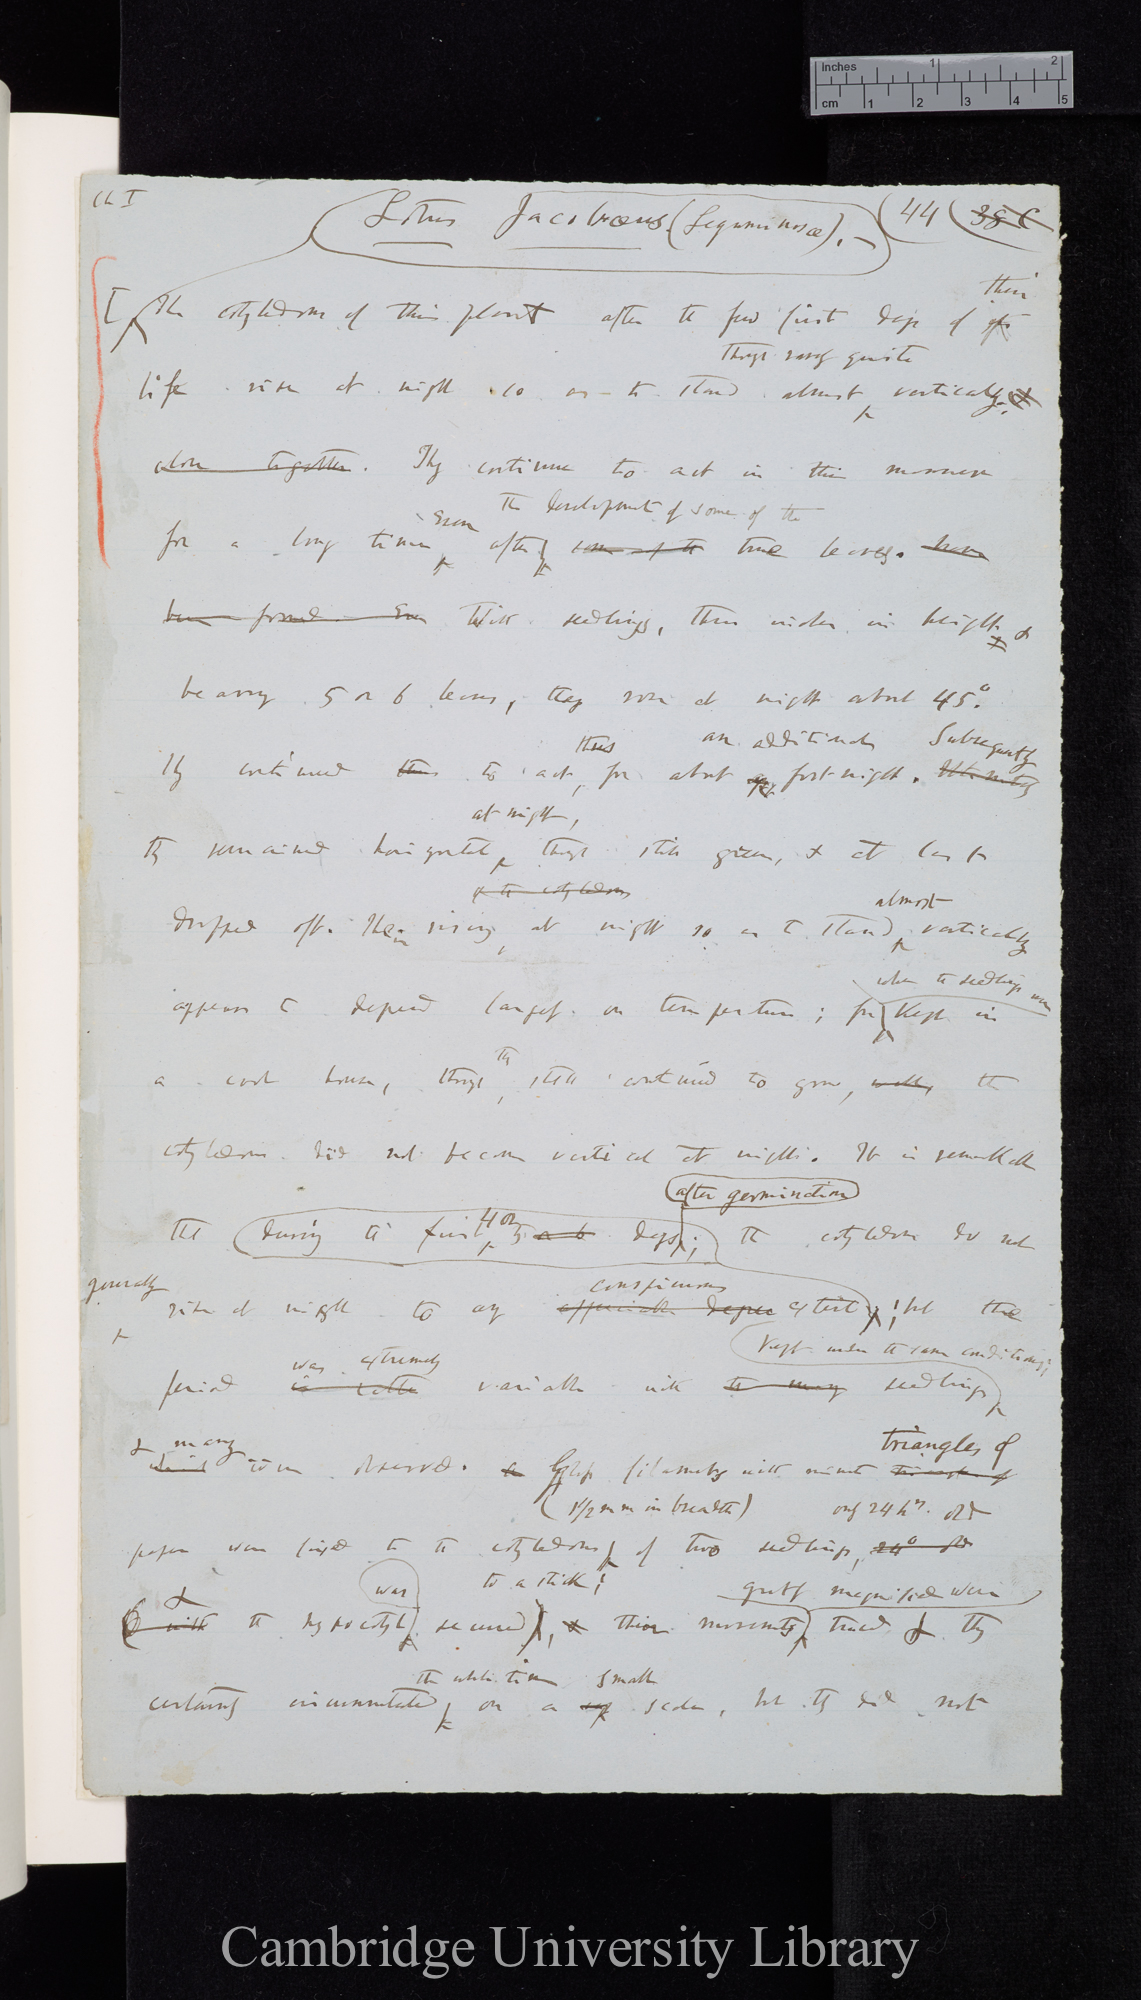 inches 1 2
cm 1 2 3 4 5
Ch I
Lotus Jacobæus (Leguminosæ).— (44 (38 C
their
[The cotyledons of this plant after the few first days of its
though rarely quite
life rise at night so as to stand almost vertically, &
close together. They continue to act in this manner
Even the development of some of the
for a long time after some of the true leaves. have
been formed Even With seedlings, three inches in height &
bearing 5 or 6 leaves, they rose at night about 45°.
thus an additional Subsequently
They continued thus to act, for about a fortnight. Ultimately
at night,
they remained horizontal, though still green, & at last
& the cotyledons
almost
dropped off. Their rising, at night so as to stand vertically
when the seedlings were
appears to depend largely on temperature; for kept in
they
a cool house, though still continued to grow, with, the
cotyledons did not become vertical at night. It is remarkable
after germination
4 or 5
that during the first days; the cotyledons do not
generally conspicuous
rise at night to any appreciable degree extent; but the
kept under the same conditions;
was extremely
period is rather variable with the many seedlings
& many triangles of
were observed. Glass filaments with minute triangles of
(1 1/2 mm in breadth) only 24 hrs. old
paper were fixed to the cotyledons of two seedlings, 24° old
& was to a stick; greatly magnified were
& with the hypocotyl secured), & their movements traced & they
the whole time small
certainly circumnutated on a scale, but they did not
Cambridge University Library